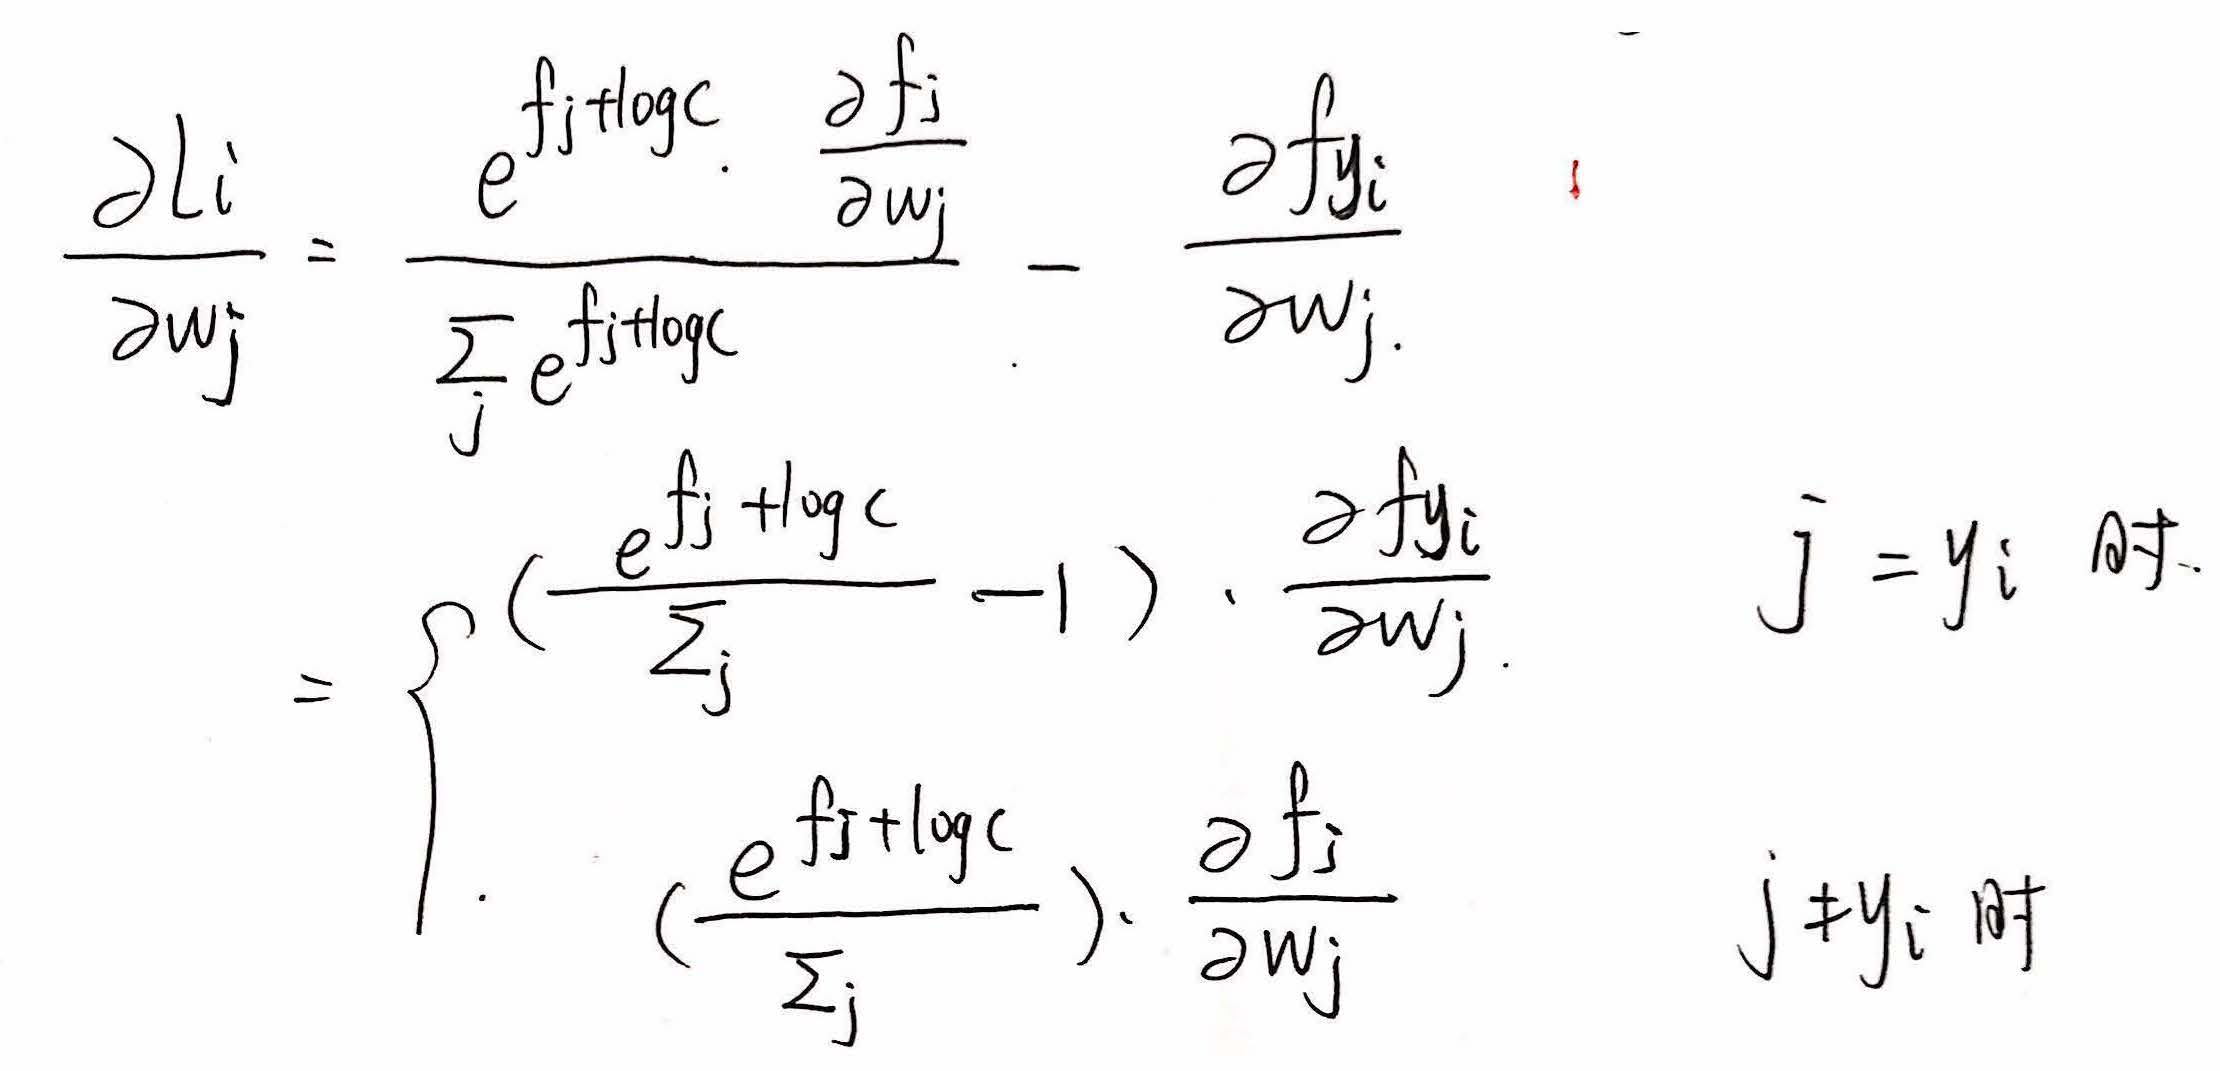 ∂Li/∂wj = (e^(fj+logc) · ∂fj/∂wj) / (∑_j e^(fj+logc)) − ∂fyi/∂wj.
= { (e^(fj+logc)/∑j −1) · ∂fyi/∂wj. j = yi 时.
(e^(fj+logc)/∑j) · ∂fj/∂wj j≠yi 时